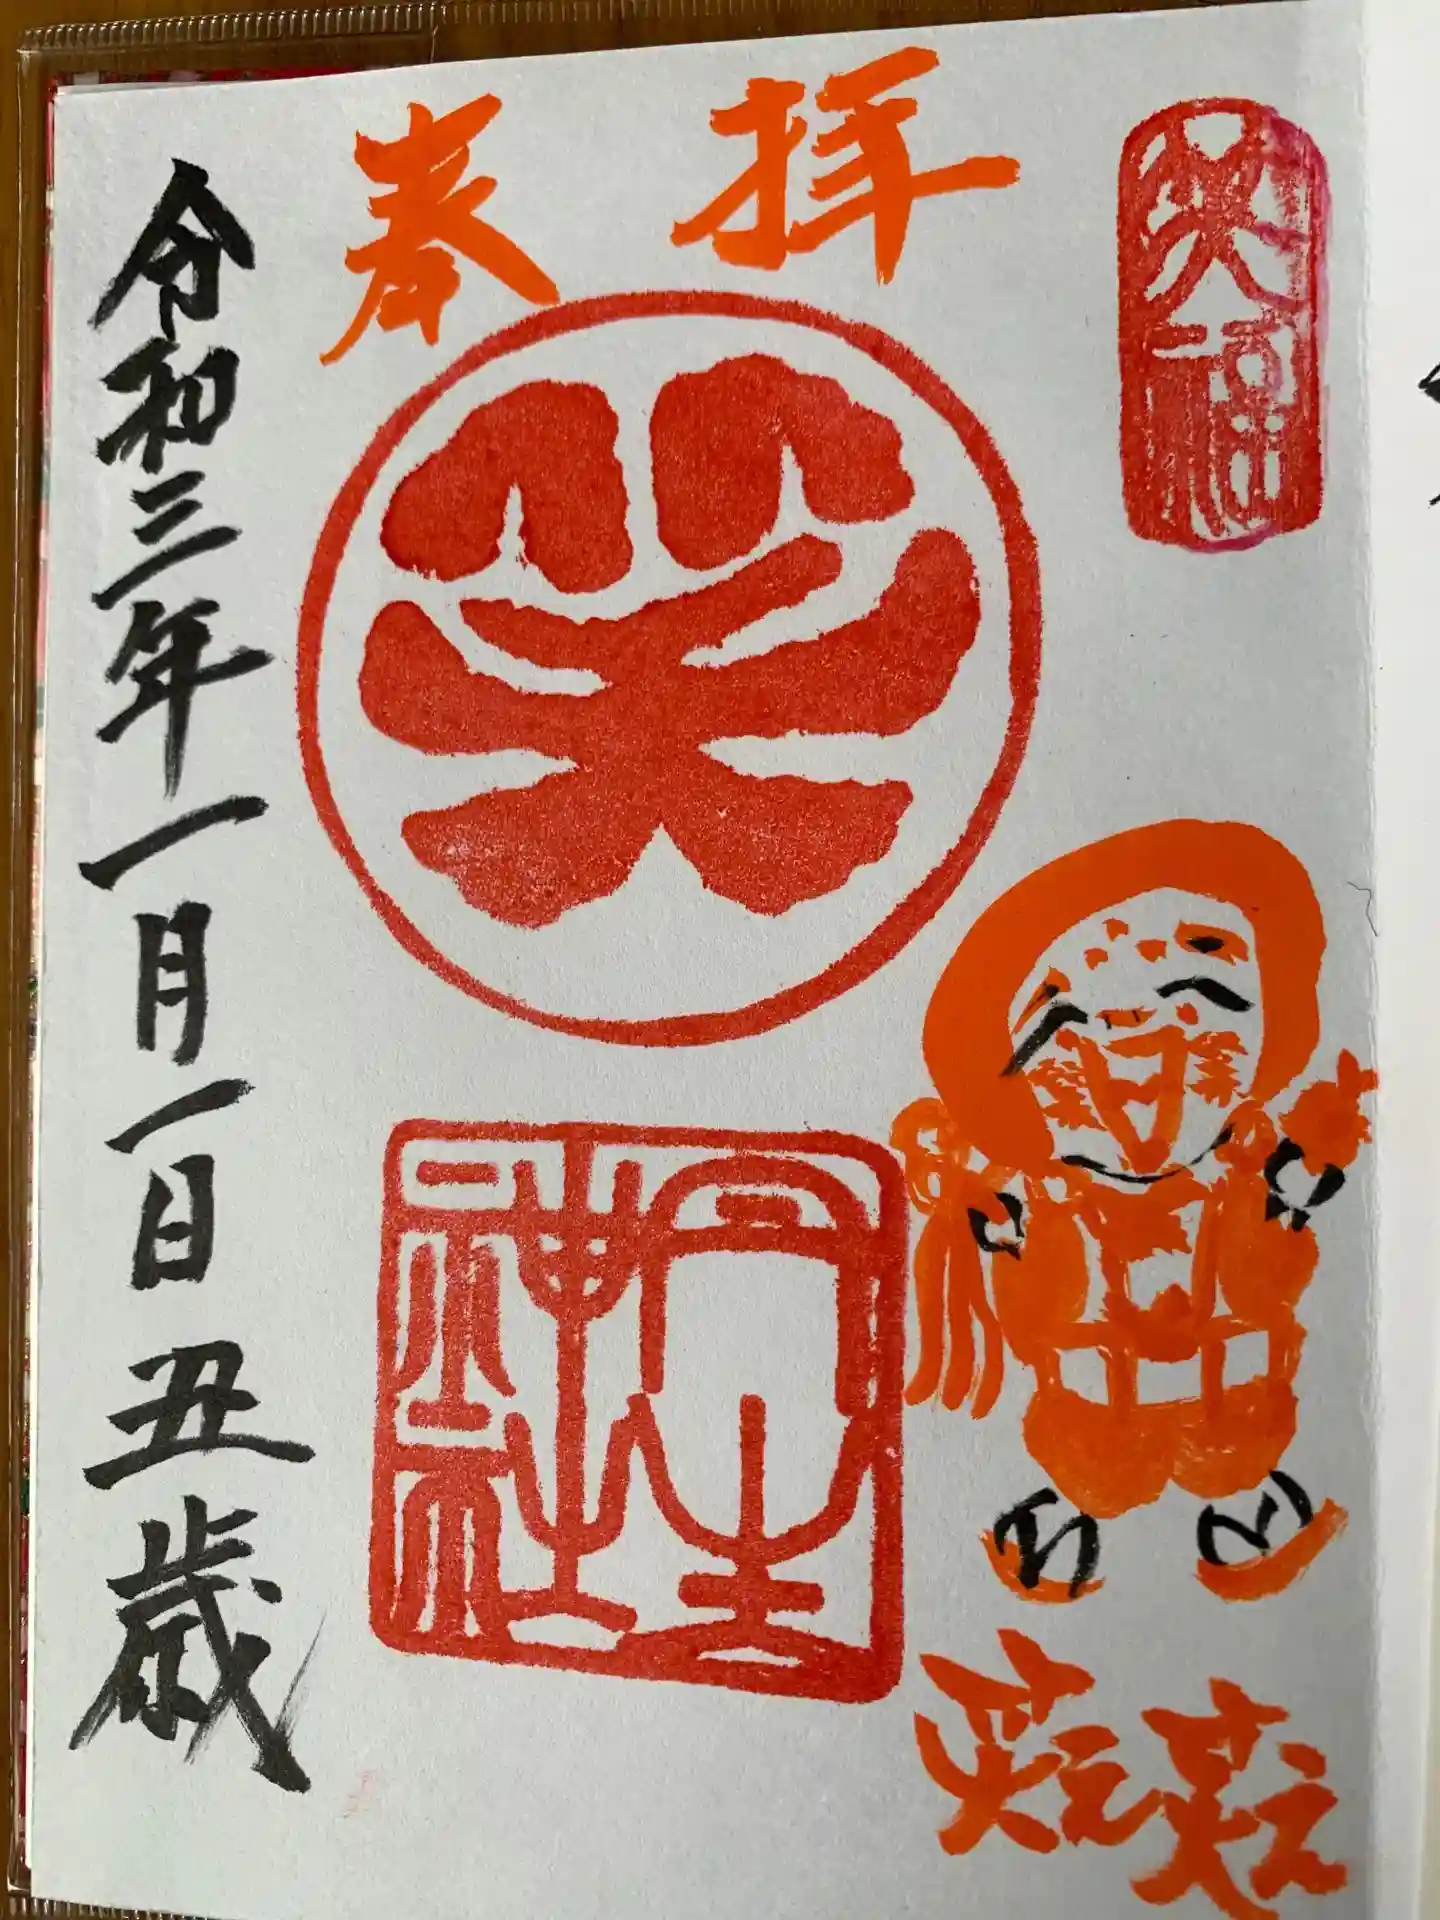 笑福
奉拝
笑
丹生
神社
令和三年一月一日 丑歳
笑え笑え